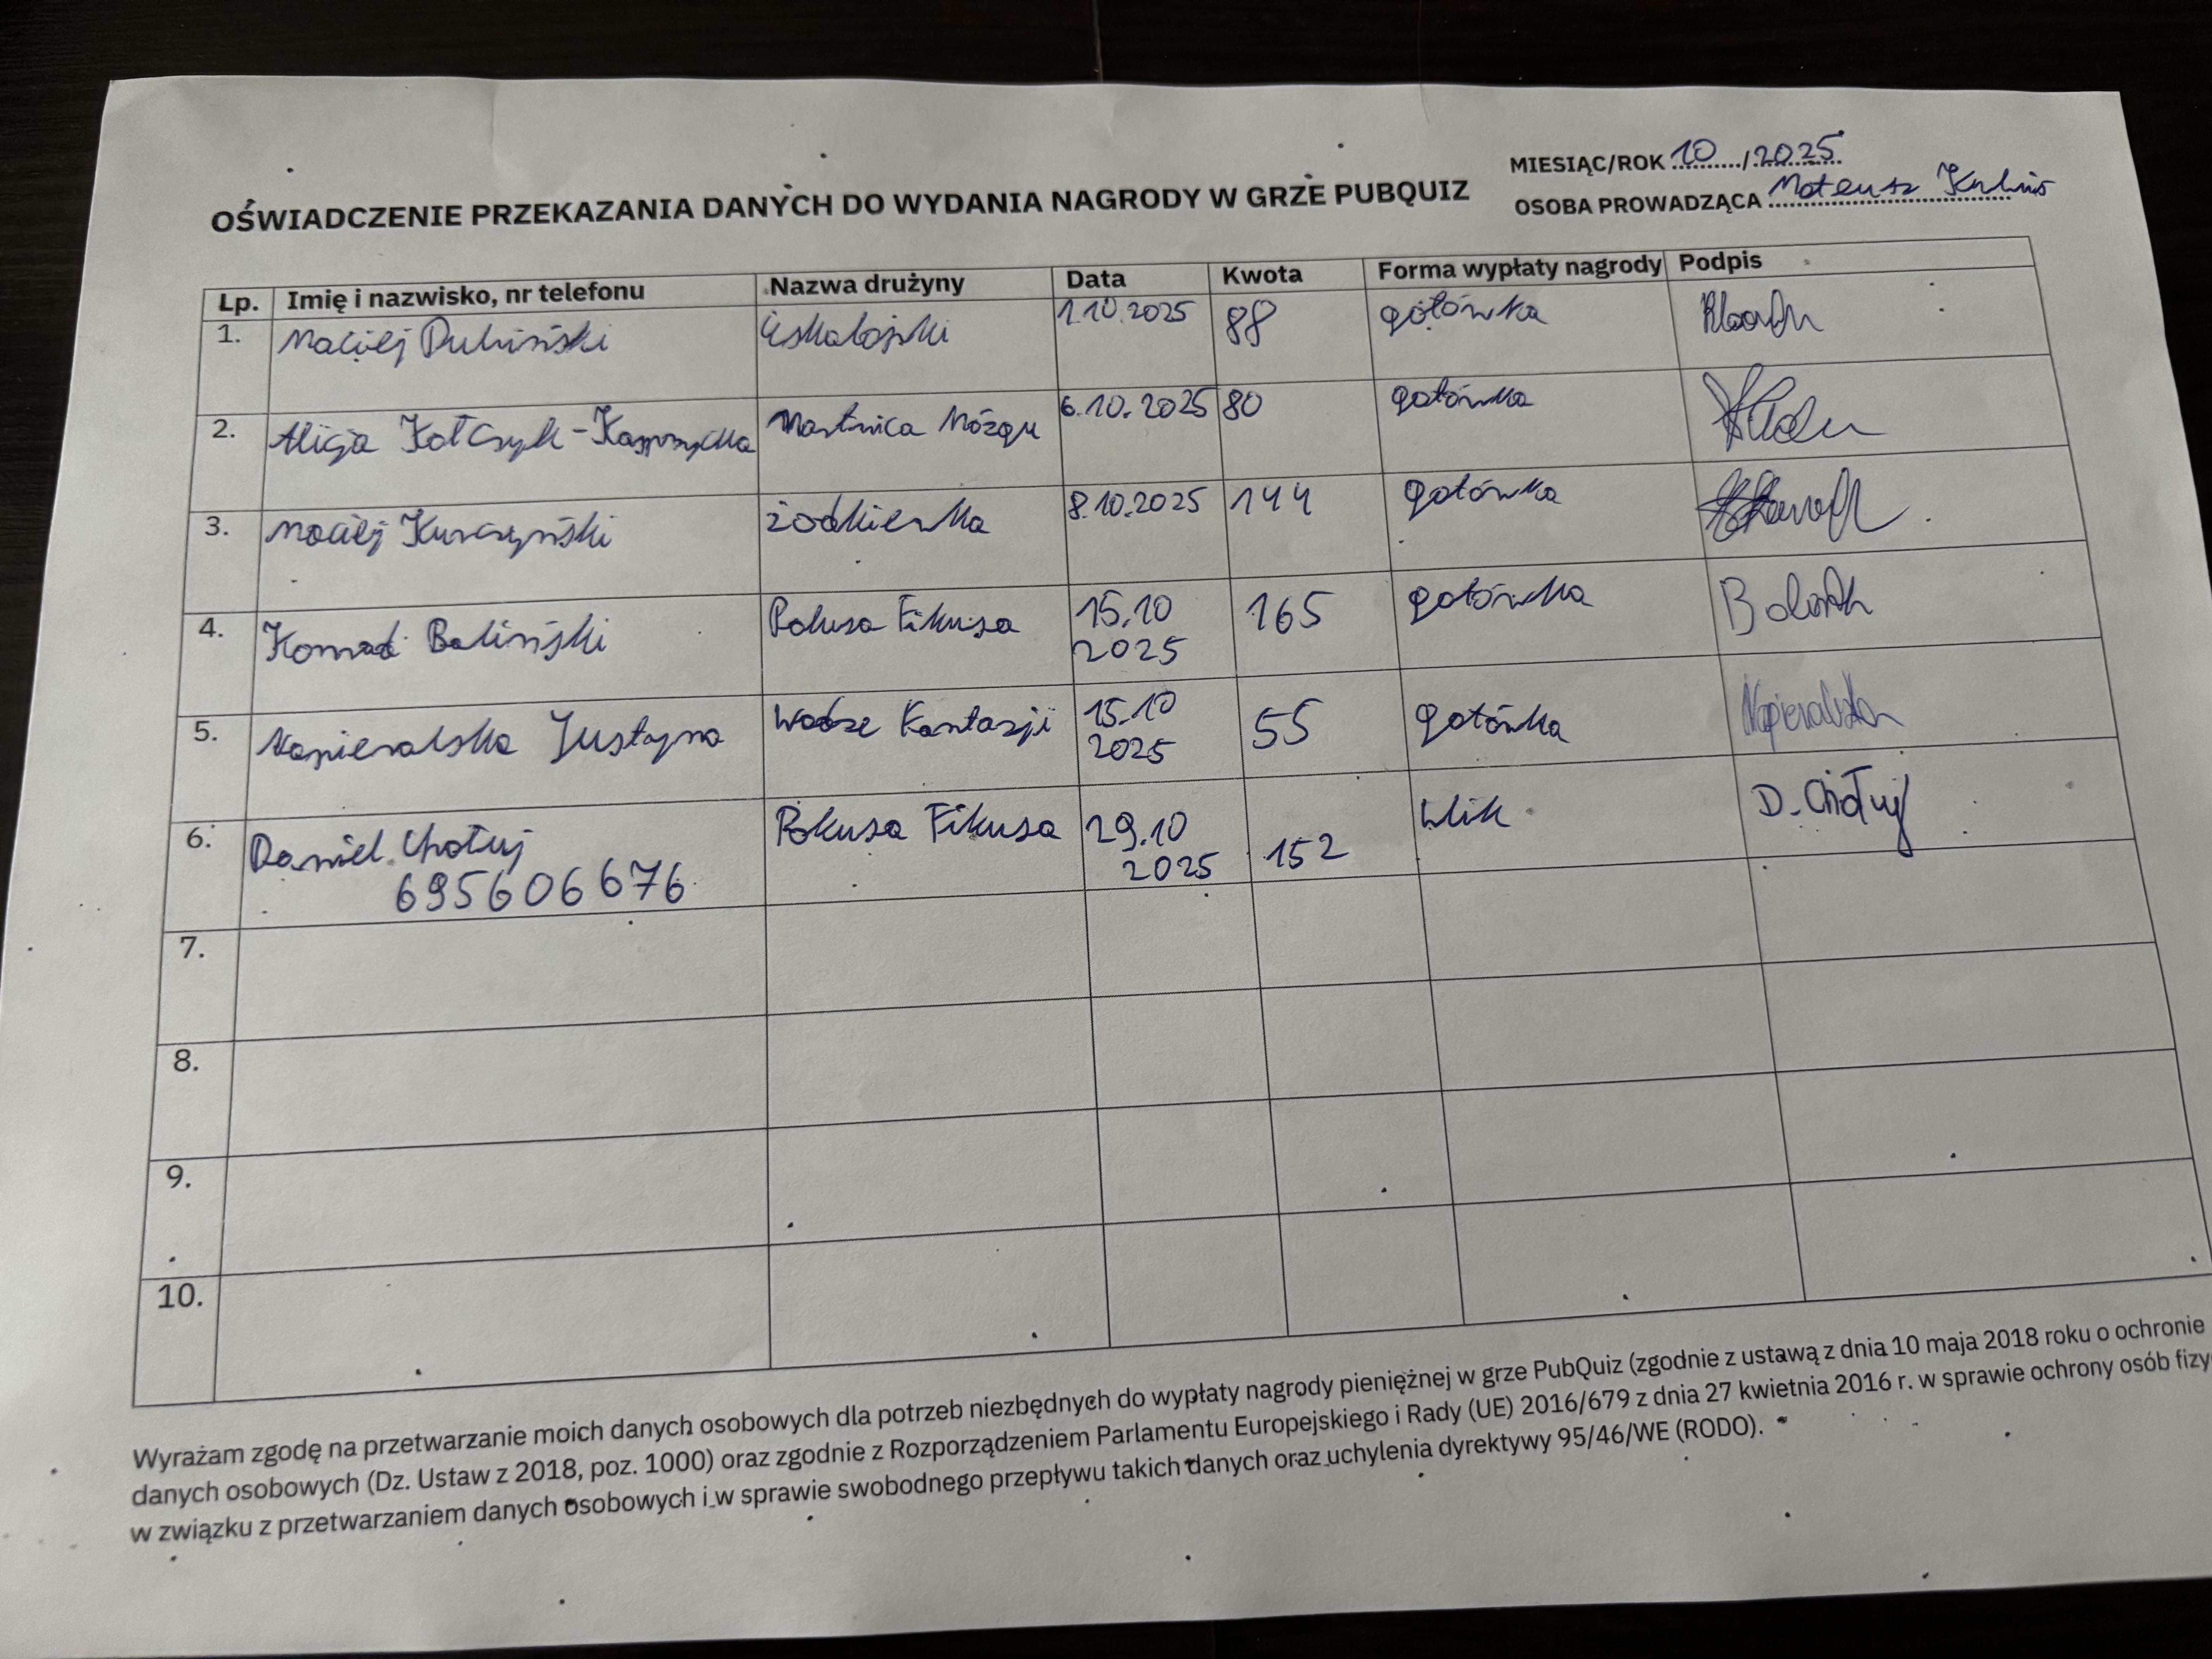 MIESIĄC/ROK 10/2025
OSOBA PROWADZĄCA Mateusz
OŚWIADCZENIE PRZEKAZANIA DANYCH DO WYDANIA NAGRODY W GRZE PUBQUIZ
Lp. Imię i nazwisko, nr telefonu Nazwa drużyny Data Kwota Forma wypłaty nagrody Podpis
1. Maciej Dubiński 1.10.2025 88 gotówka
2. Alicja Kołczyk-Kasprzycka Martwica Mózgu 6.10.2025 80 gotówka
3. Maciej Kurczyński żodkiewka 8.10.2025 144 gotówka
4. Konrad Baliński Pokusa Fikusa 15.10
2025 165 gotówka
5. Napieralska Justyna Wodze Fantazji 15.10
2025 55 gotówka Napieralska
6. Daniel Chołuj Pokusa Fikusa 29.10
2025 152 blik D. Chołuj
695606676
7.
8.
9.
10.
Wyrażam zgodę na przetwarzanie moich danych osobowych dla potrzeb niezbędnych do wypłaty nagrody pieniężnej w grze PubQuiz (zgodnie z ustawą z dnia 10 maja 2018 roku o ochronie
danych osobowych (Dz. Ustaw z 2018, poz. 1000) oraz zgodnie z Rozporządzeniem Parlamentu Europejskiego i Rady (UE) 2016/679 z dnia 27 kwietnia 2016 r. w sprawie ochrony osób
w związku z przetwarzaniem danych osobowych i w sprawie swobodnego przepływu takich danych oraz uchylenia dyrektywy 95/46/WE (RODO).